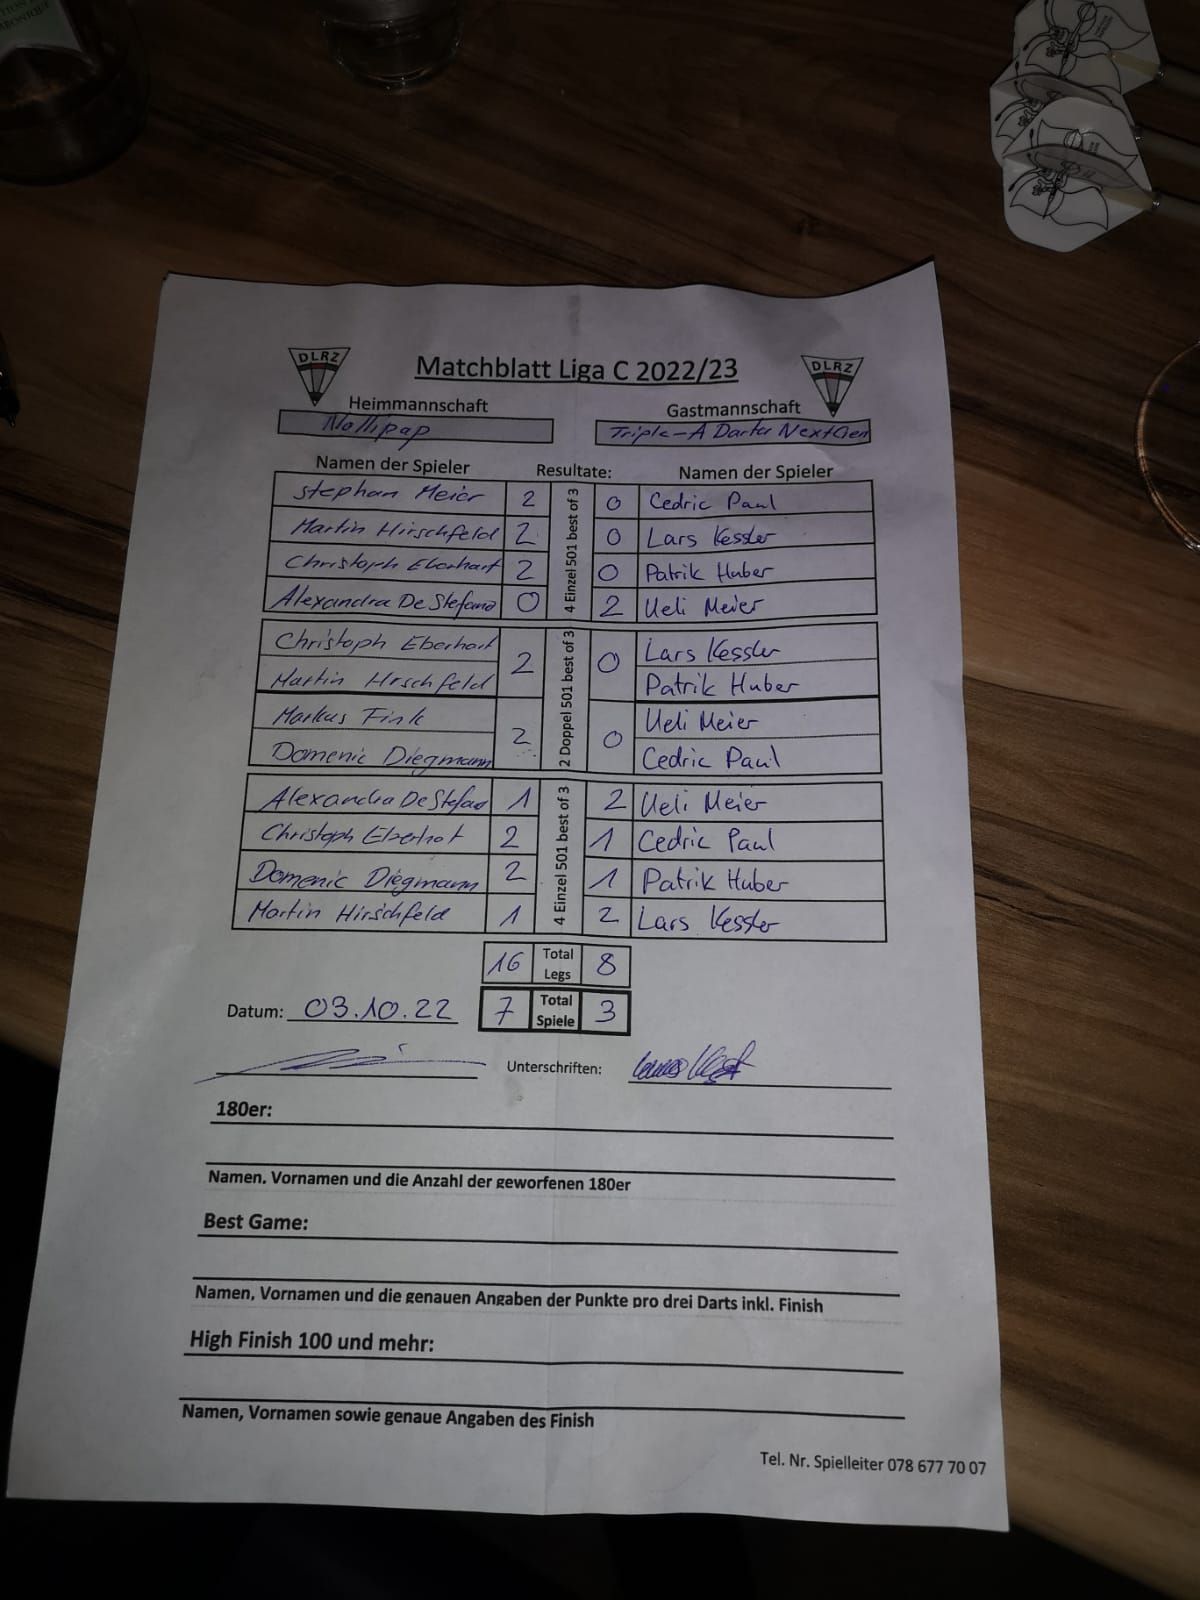 DLRZ Matchblatt Liga C 2022/23 DLRZ
Heimmannschaft Gastmannschaft
Nollipap Triple-A Darter NextGen
Namen der Spieler Resultate: Namen der Spieler
Stephan Meier 2 0 Cedric Paul
Martin Hirschfeld 2 0 Lars Kessler
Christoph Eberhart 2 0 Patrik Huber
Alexandra De Stefano 0 2 Ueli Meier
4 Einzel 501 best of 3
Christoph Eberhart 2 0 Lars Kessler
Martin Hirschfeld Patrik Huber
Markus Fink 2 0 Ueli Meier
Domenic Diegmann Cedric Paul
2 Doppel 501 best of 3
Alexandra De Stefano 1 2 Ueli Meier
Christoph Eberhart 2 1 Cedric Paul
Domenic Diegmann 2 1 Patrik Huber
Martin Hirschfeld 1 2 Lars Kessler
4 Einzel 501 best of 3
16 Total Legs 8
Datum: 03.10.22 7 Total Spiele 3
Unterschriften:
180er:
Namen, Vornamen und die Anzahl der geworfenen 180er
Best Game:
Namen, Vornamen und die genauen Angaben der Punkte pro drei Darts inkl. Finish
High Finish 100 und mehr:
Namen, Vornamen sowie genaue Angaben des Finish
Tel. Nr. Spielleiter 078 677 70 07